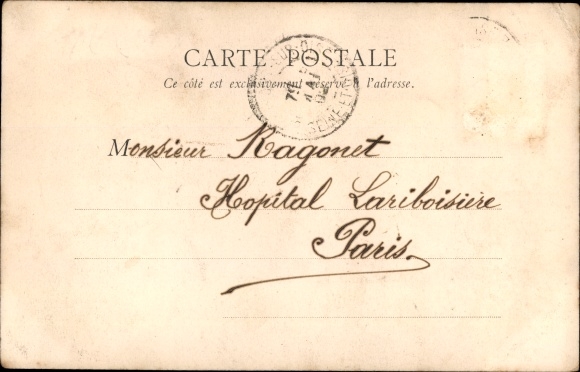 CARTE POSTALE
Ce côté est exclusivement réservé à l'adresse.
SEINE-ET-
MAI
Monsieur Ragonet
Hopital Lariboisière
Paris